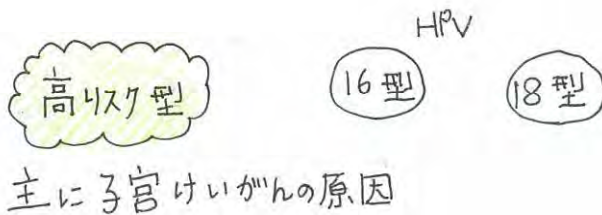 HPV
高リスク型 16型 18型
主に子宮けいがんの原因